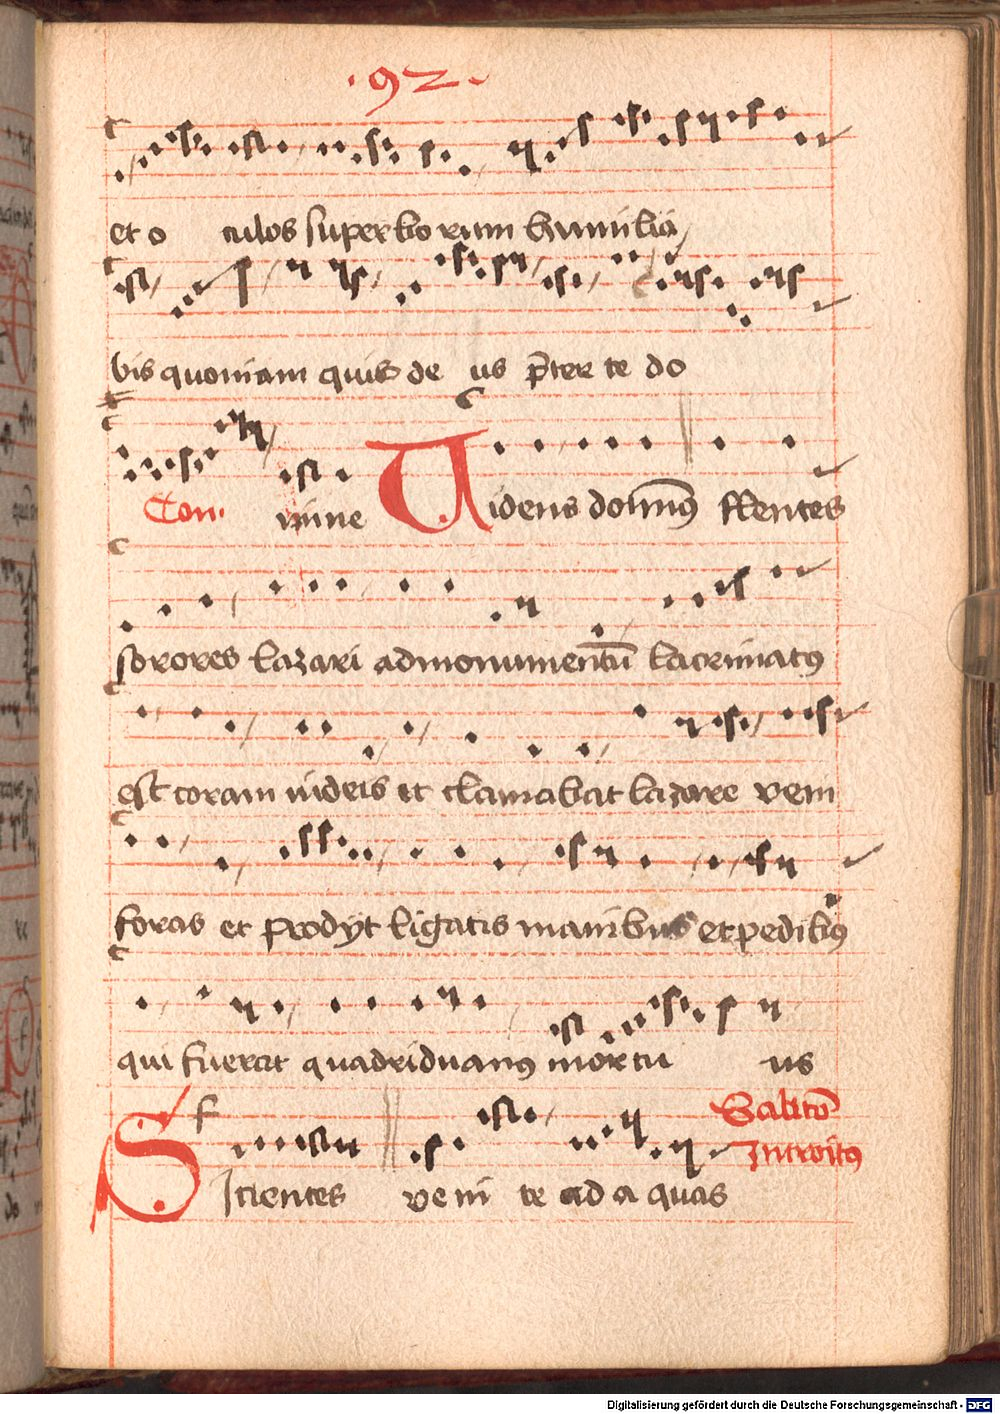 ·92·
et o culos superbo rum humilia
bis quoniam quis de us p̄ter te do
Con. mine Uidens domin9 flentes
sorores lazari ad monumentū lacrimat9
est coram iudeis et clamabat lazare veni
foras et prodyt ligatis manibus et pedib9
qui fuerat quadriduan9 mortu us
F Sabbō
Sicientes veni te ad a quas Introit9
Digitalisierung gefördert durch die Deutsche Forschungsgemeinschaft - DFG